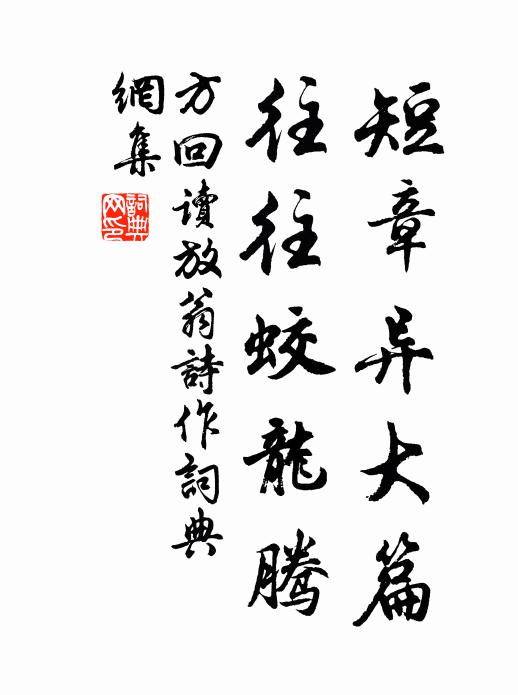 短章异大篇
往往蛟龍騰
方回讀放翁詩作詞典
網集
詞典网印